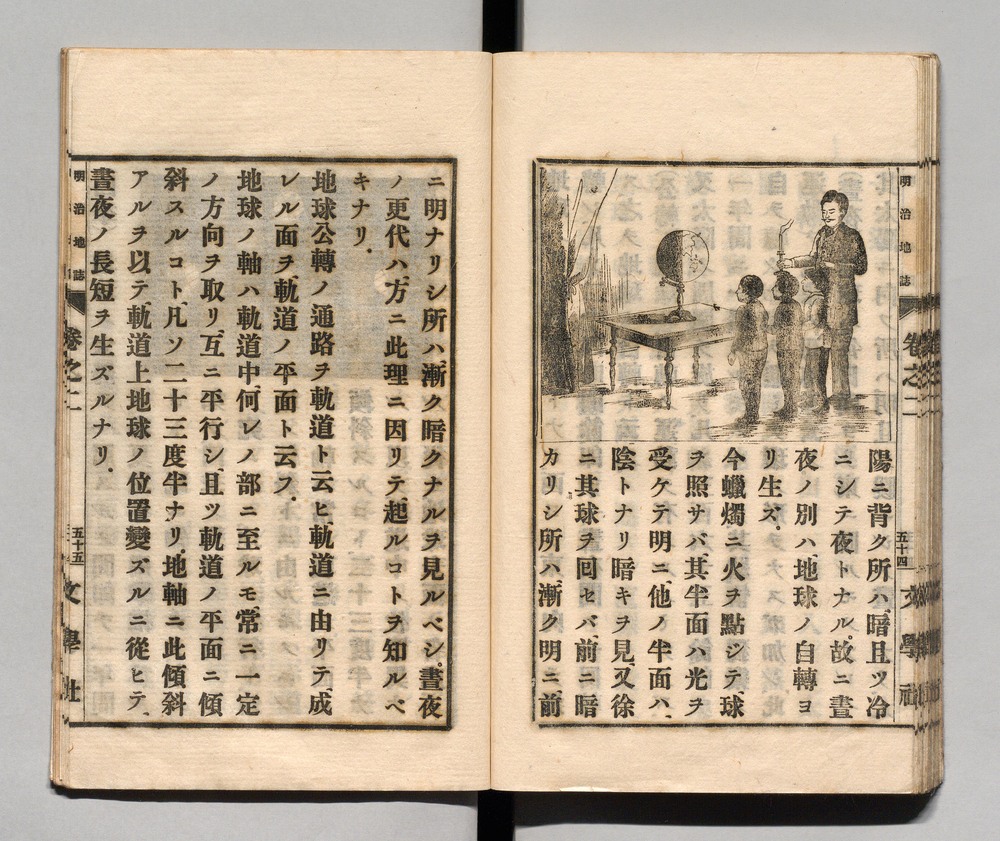 明治地誌
卷之二
五十四
文學社
陽ニ背ク所ハ、暗且ツ冷
ニシテ夜トナル。故ニ晝
夜ノ別ハ、地球ノ自轉ヨ
リ生ズ。
今蠟燭ニ火ヲ點ジテ、球
ヲ照サバ、其半面ハ光ヲ
受ケテ明ニ、他ノ半面ハ、
陰トナリ暗キヲ見、又徐
ニ其球ヲ囘セバ、前ニ暗
カリシ所ハ、漸ク明ニ、前
ニ明ナリシ所ハ、漸ク暗クナルヲ見ルベシ。晝夜
ノ更代ハ、方ニ此理ニ因リテ、起ルコトヲ知ルベ
キナリ。
地球公轉ノ通路ヲ軌道ト云ヒ、軌道ニ由リテ、成
レル面ヲ、軌道ノ平面ト云フ。
地球ノ軸ハ、軌道中、何レノ部ニ至ルモ、常ニ一定
ノ方向ヲ取リ、互ニ平行シ、且ツ軌道ノ平面ニ傾
斜スルコト、凡ソ二十三度半ナリ。地軸ニ此傾斜
アルヲ以テ、軌道上地球ノ位置變ズルニ從ヒテ、
晝夜ノ長短ヲ生ズルナリ。
明治地誌
卷之二
五十五
文學社